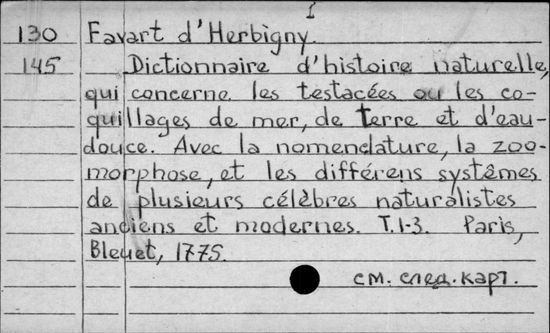 I
130 Favart d'Herbigny.
145 Dictionnaire d'histoire naturelle,
qui concerne les testacées ou les co-
quillages de mer, de terre et d'eau-
douce. Avec la nomenclature, la zoo-
morphose, et les différens systêmes
de plusieurs célèbres naturalistes
anciens et modernes. T.1-3. Paris,
Bleuet, 1775.
см. след. карт.